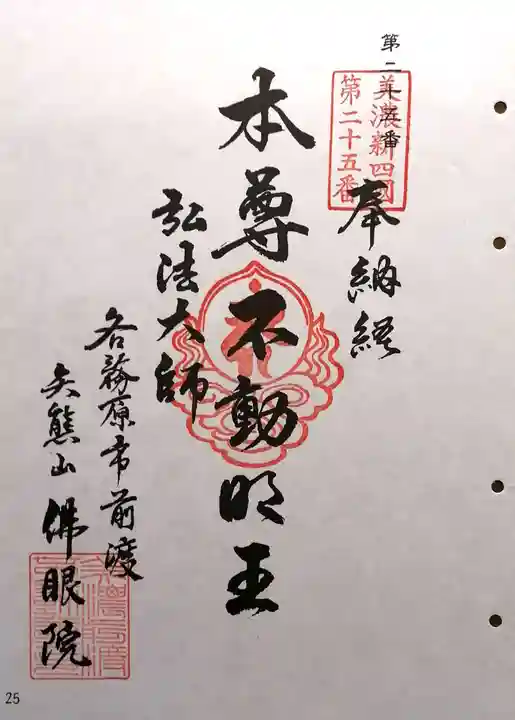 第二十五番
美濃新四國
第二十五番
奉納経
本尊不動明王
弘法大師
各務原市前渡
矢熊山佛眼院
25